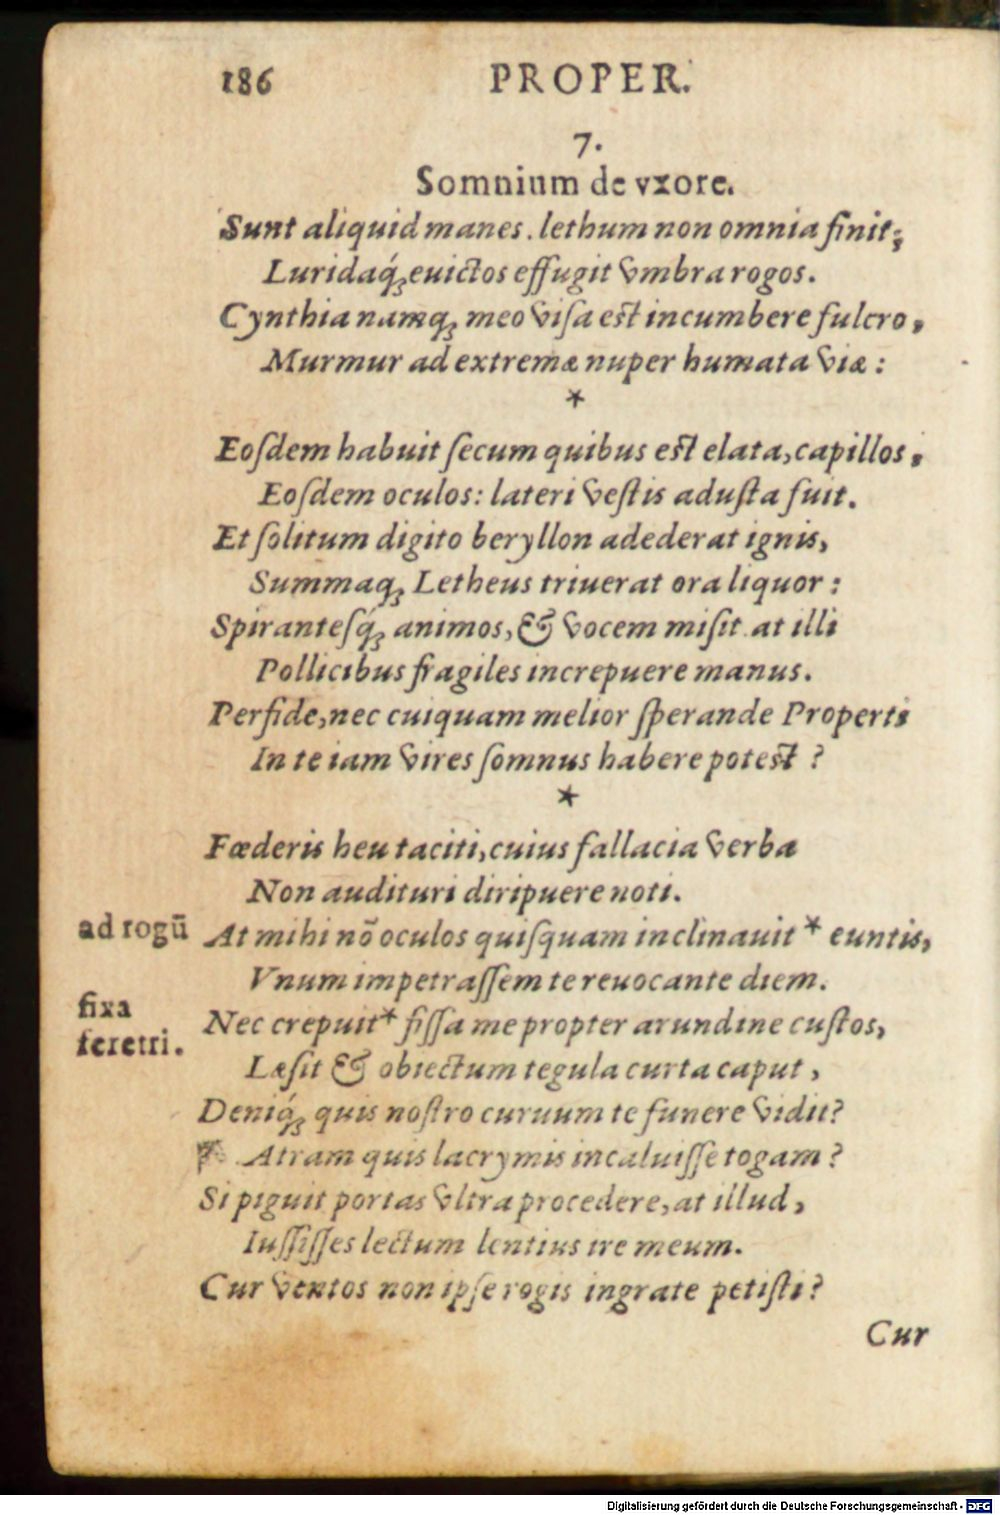 186 PROPER.
7.
Somnium de vxore.
Sunt aliquid manes. lethum non omnia finit;
Luridaq́ꝫ euictos effugit vmbra rogos.
Cynthia namqꝫ meo viſa est incumbere fulcro,
Murmur ad extremæ nuper humata viæ:
*
Eoſdem habuit ſecum quibus est elata, capillos,
Eoſdem oculos: lateri veſtis aduſta fuit.
Et ſolitum digito beryllon adederat ignis,
Summaqꝫ Letheus triuerat ora liquor:
Spiranteſq́ꝫ animos, & vocem miſit. at illi
Pollicibus fragiles increpuere manus.
Perfide, nec cuiquam melior ſperande Properti
In te iam vires ſomnus habere potest?
*
Fœderis heu taciti, cuius fallacia verba
Non audituri diripuere noti.
ad rogū At mihi nō oculos quiſquam inclinauit * euntis,
Vnum impetraſſem te reuocante diem.
fixa Nec crepuit * fiſſa me propter arundine cuſtos,
feretri. Læſit & obiectum tegula curta caput,
Deniq́ꝫ quis noſtro curuum te funere vidit?
Atram quis lacrymis incaluiſſe togam?
Si piguit portas vltra procedere, at illud,
Iuſſiſſes lectum lentius ire meum.
Cur ventos non ipſe rogis ingrate petiſti?
Cur
Digitalisierung gefördert durch die Deutsche Forschungsgemeinschaft - DFG